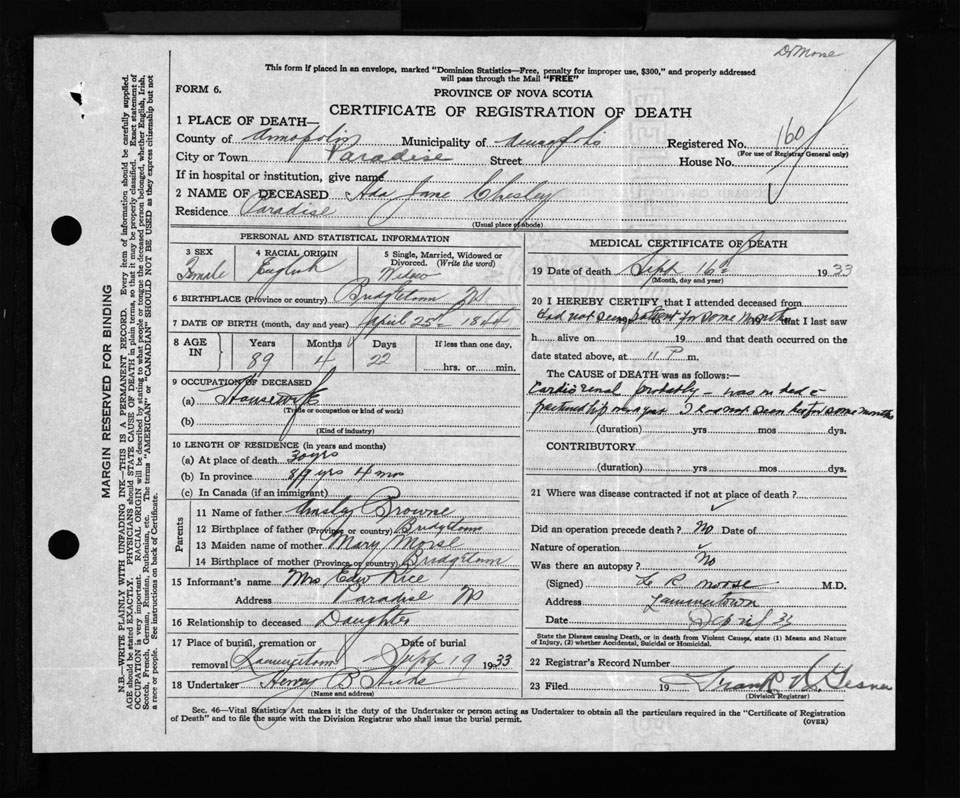 Dr Morse
This form if placed in an envelope, marked "Dominion Statistics—Free, penalty for improper use, $300," and properly addressed
will pass through the Mail "FREE"
FORM 6.
PROVINCE OF NOVA SCOTIA
CERTIFICATE OF REGISTRATION OF DEATH
1 PLACE OF DEATH—
County of Annapolis Municipality of Annapolis Registered No. 160
(For use of Registrar General only)
City or Town Paradise Street House No.
If in hospital or institution, give name
2 NAME OF DECEASED Ada Jane Chesley
Residence Paradise
(Usual place of abode)
PERSONAL AND STATISTICAL INFORMATION
3 SEX 4 RACIAL ORIGIN 5 Single, Married, Widowed or
Divorced. (Write the word)
Female English Widow
6 BIRTHPLACE (Province or country) Bridgetown NS
7 DATE OF BIRTH (month, day and year) April 25th 1844
8 AGE IN Years Months Days If less than one day,
89 4 22 hrs. or min.
9 OCCUPATION OF DECEASED
(a) Housewife
(Trade or occupation or kind of work)
(b)
(Kind of industry)
10 LENGTH OF RESIDENCE (in years and months)
(a) At place of death 30 yrs
(b) In province 89 yrs 4 mo
(c) In Canada (if an immigrant)
Parents
11 Name of father Browne
12 Birthplace of father (Province or country) Bridgetown
13 Maiden name of mother Mary Morse
14 Birthplace of mother (Province or country) Bridgetown
15 Informant's name Mrs Edw Rice
Address Paradise NS
16 Relationship to deceased Daughter
17 Place of burial, cremation or Date of burial
removal Lawrencetown Sept 19 1933
18 Undertaker Henry B Hicks
(Name and address)
MEDICAL CERTIFICATE OF DEATH
19 Date of death Sept 16th 1933
(Month, day and year)
20 I HEREBY CERTIFY that I attended deceased from
Had not seen patient for some months that I last saw
h alive on 19 and that death occurred on the
date stated above, at 11 P m.
The CAUSE OF DEATH was as follows:—
Cardio renal probably - was in bed
fractured hip I had not seen her for some months
(duration) yrs mos dys.
CONTRIBUTORY
(duration) yrs mos dys.
21 Where was disease contracted if not at place of death?
Did an operation precede death? No Date of
Nature of operation
Was there an autopsy? No
(Signed) R Morse M.D.
Address Lawrencetown
Date Sep 33
State the Disease causing Death, or in death from Violent Causes, state (1) Means and Nature
of Injury, (2) whether Accidental, Suicidal or Homicidal.
22 Registrar's Record Number
23 Filed 19 Frank Gesner
(Division Registrar)
Sec. 46—Vital Statistics Act makes it the duty of the Undertaker or person acting as Undertaker to obtain all the particulars required in the "Certificate of Registration
of Death" and to file the same with the Division Registrar who shall issue the burial permit.
(OVER)
MARGIN RESERVED FOR BINDING
N.B.—WRITE PLAINLY WITH UNFADING INK—THIS IS A PERMANENT RECORD. Every item of information should be carefully supplied.
AGE should be stated EXACTLY. PHYSICIANS should STATE CAUSE OF DEATH in plain terms, so that it may be properly classified. Exact statement of
OCCUPATION is very important. RACIAL ORIGIN will be described by stating to what people or tongue the deceased person belonged, whether English, Irish,
Scotch, French, German, Russian, Ruthenian, etc. The terms "AMERICAN" or "CANADIAN" SHOULD NOT BE USED as they express citizenship but not
a race or people. See instructions on back of Certificate.